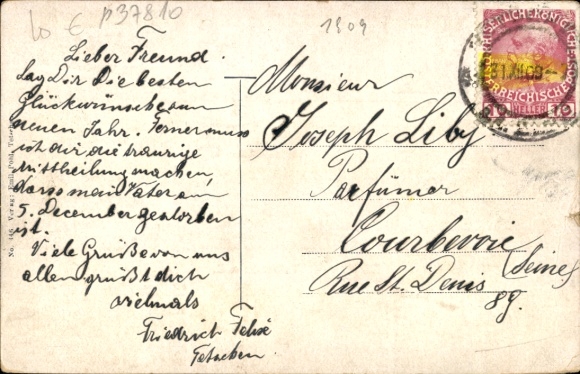 10 € p37810
1909
Lieber Freund.
sag Dir Die besten
Glückwünsche zum
neuen Jahr. Ferner muss
ich dir die traurige
Mittheilung machen,
dass mein Vater am
5. December gestorben
ist.
Viele Grüße von uns
allen grüßt dich
vielmals
Friedrich Felix
Tetschen.
Monsieur
Joseph Liby
Parfümer
Courbevoie
(Seine)
Rue St. Denis
89.
KAISERLICHE KÖNIGLICHE
ÖSTERREICHISCHE POST
10 HELLER 10
31.XII.09